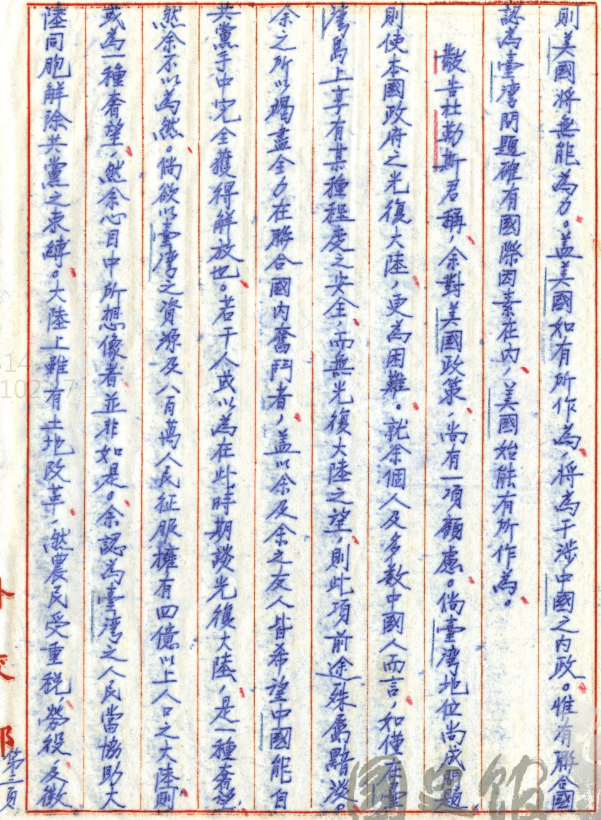 則美國將無能為力。蓋美國如有所作為，將為干涉中國之內政。惟有聯合國
認為臺灣問題確有國際因素在內，美國始能有所作為。
敬告杜勒斯君稱，余對美國政策，尚有一項顧慮。倘臺灣地位尚成問題
則使本國政府之光復大陸，更為困難。就余個人及多數中國人而言，如僅在臺
灣島上享有某種程度之安全，而無光復大陸之望，則此項前途殊屬黯淡。
余之所以竭盡全力在聯合國內奮鬥者，蓋以余及余之友人皆希望中國能自
共黨手中完全獲得解放也。若干人或以為在此時期談光復大陸，是一種奢望
然余不以為然。倘欲以臺灣之資源及八百萬人民征服擁有四億以上人口之大陸則
或為一種奢望，然余心目中所想像者並非如是。余認為臺灣之人民當協助大
陸同胞解除共黨之束縛。大陸上雖有土地改革，然農民受重稅，勞役及徵
外交部
第三頁
國史館